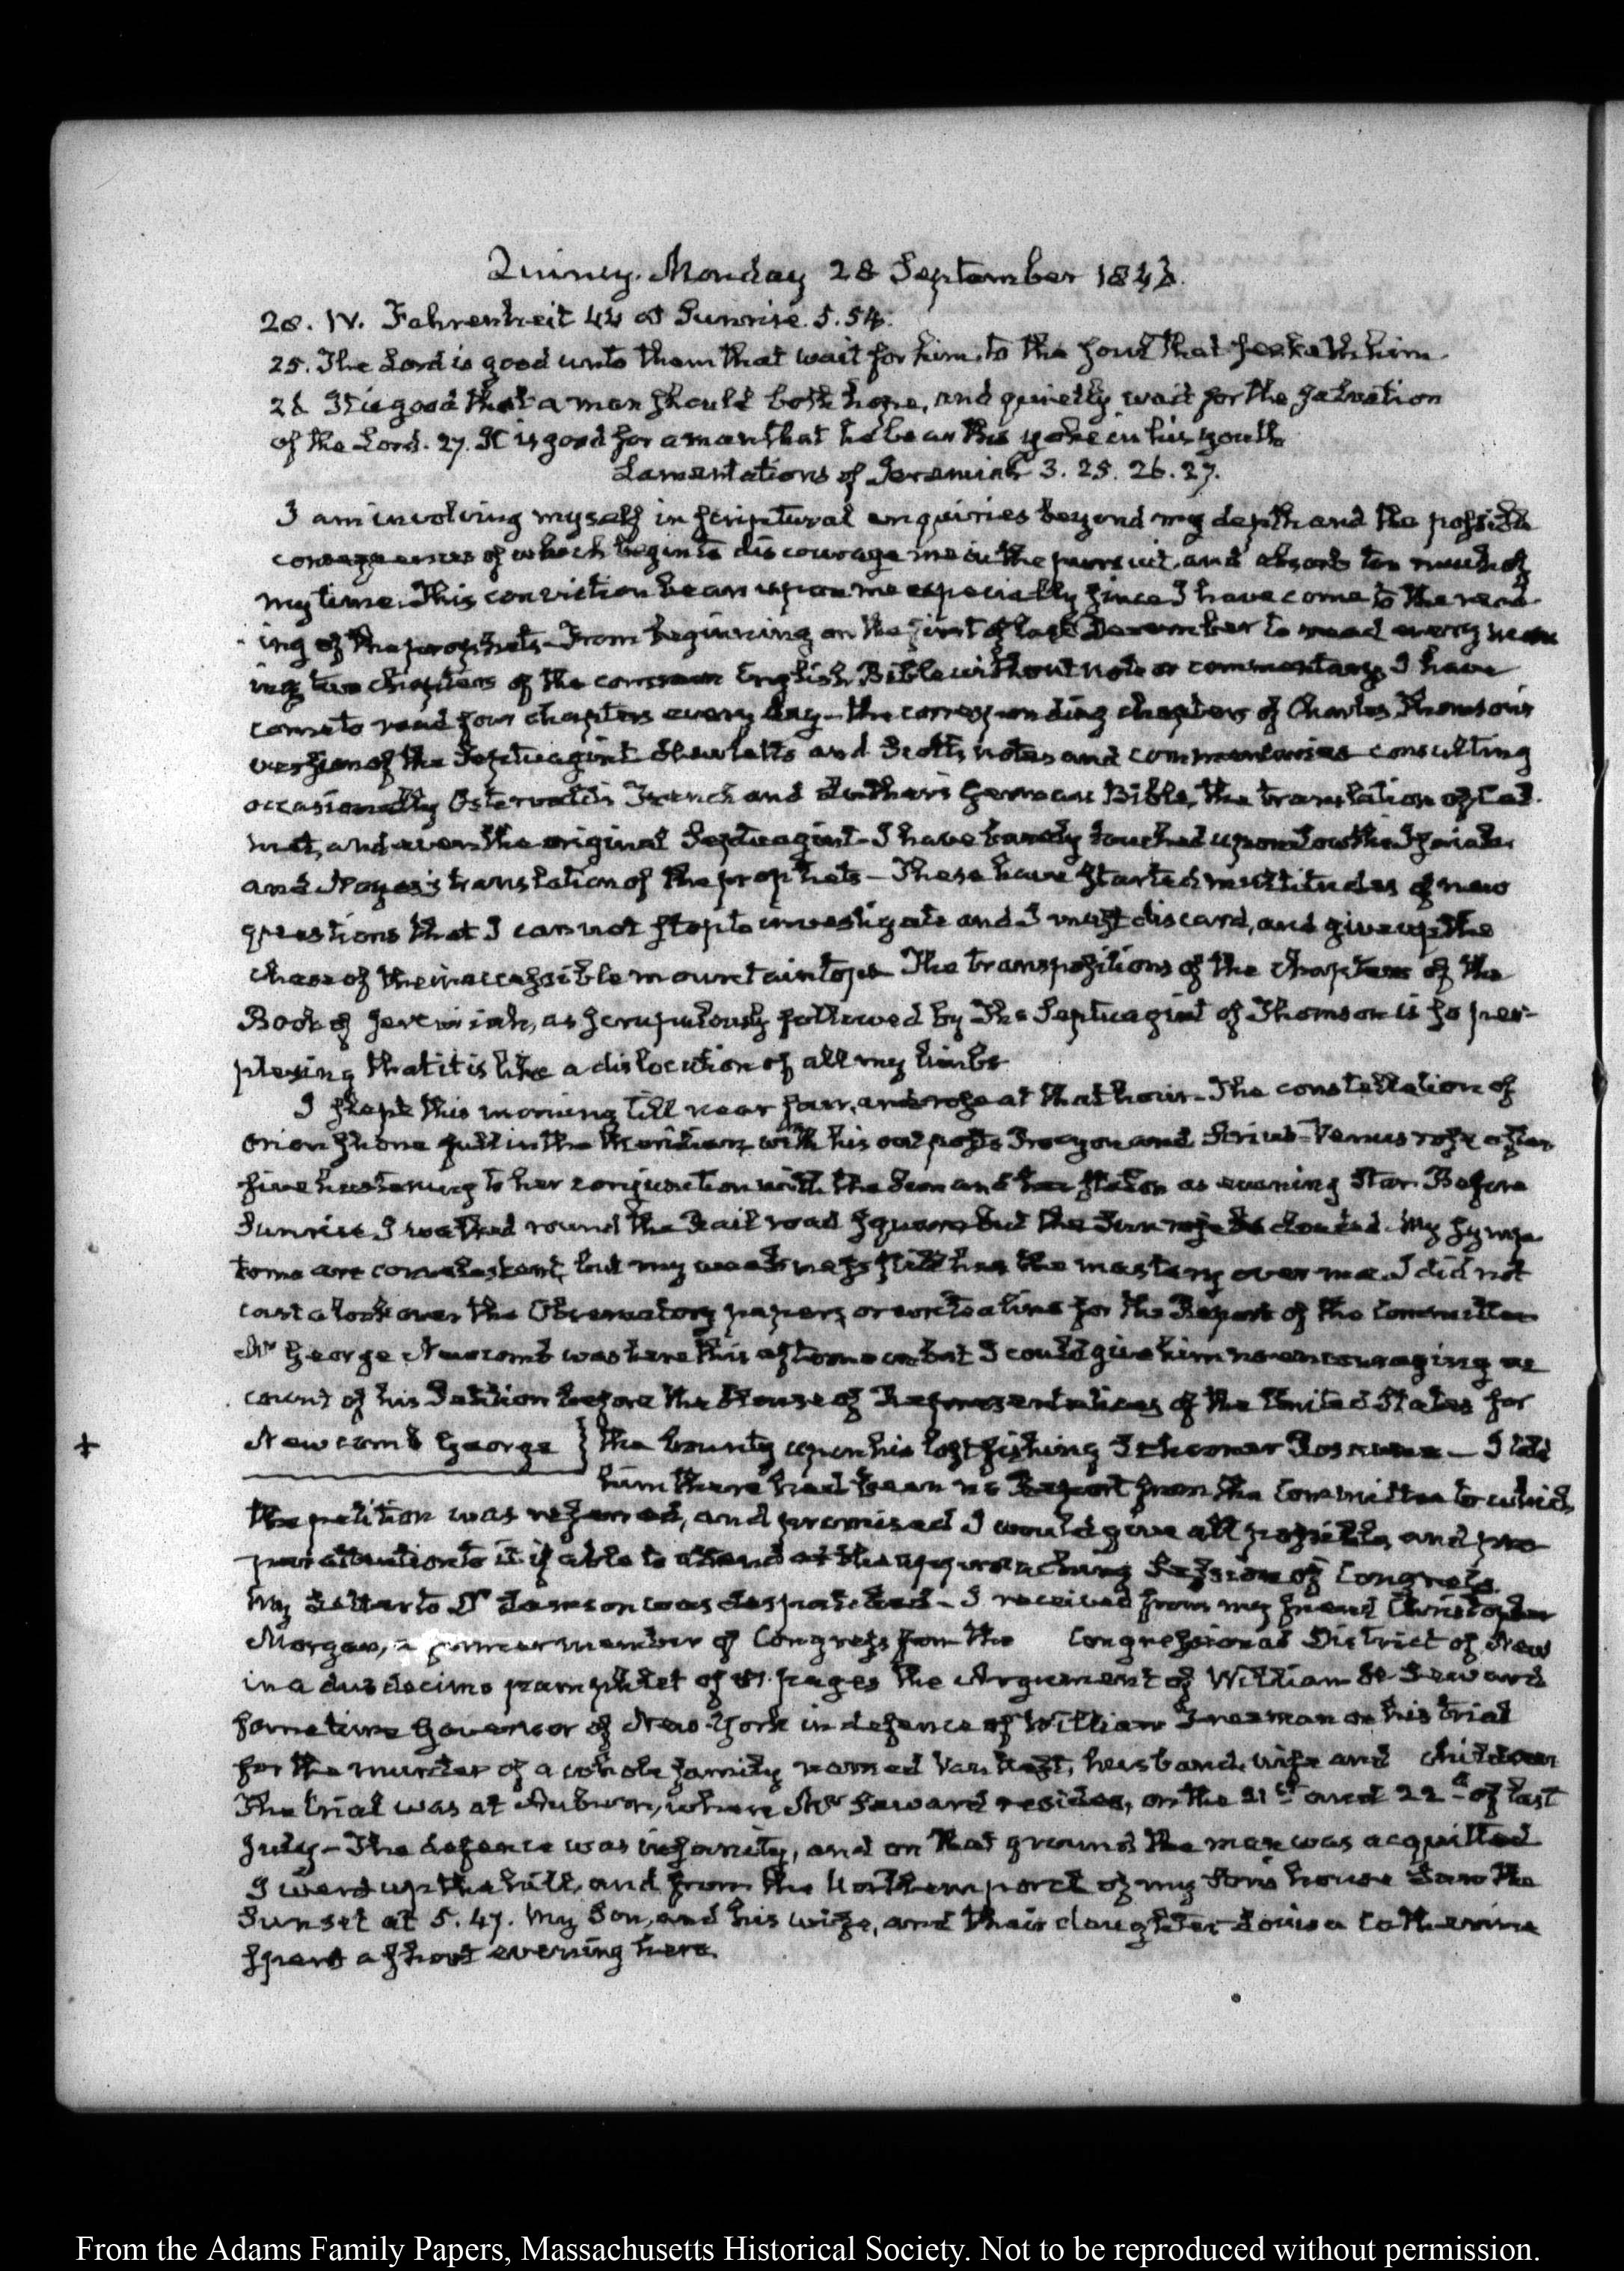 Quincy. Monday 28 September 1846.
28. IV. Fahrenheit 44 at Sunrise. 5.54.
25. The Lord is good unto them that wait for him, to the soul that seeketh him.
26 It is good that a man should both hope, and quietly wait for the salvation
of the Lord. 27. It is good for a man that he bear the yoke in his youth
Lamentations of Jeremiah 3. 25. 26. 27.
I am involving myself in scriptural enquiries beyond my depth and the possible
consequences of which begin to discourage me in the pursuit, and absorb too much of
my time. This conviction bears upon me especially since I have come to the read-
ing of the prophets. From beginning on the first of last December to read every morn
ing two chapters of the common English Bible without note or commentary, I have
come to read four chapters every day—the corresponding chapters of Charles Thomson's
version of the Septuagint Hewletts and Scotts notes and commentaries consulting
occasionally Ostervald's French and Luther's German Bible, the translation of Cal-
met, and even the original Septuagint—I have barely touched upon Lowth's Isaiah
and Noyes's translation of the prophets—These have started multitudes of new
questions that I cannot stop to investigate and I must discard, and give up the
chase of the inaccessible mountain tops. The transpositions of the chapters of the
Book of Jeremiah, as scrupulously followed by the Septuagint of Thomson is so per-
plexing that it is like a dislocation of all my limbs
I slept this morning till near four, and rose at that hour—The constellation of
Orion shone full in the Meridian, with his outposts Procyon and Sirius—Venus rose after
five hastening to her conjunction with the Sun and her station as evening Star. Before
Sunrise I walked round the Rail road square but the Sun rose clouded. My symp-
toms are convalescent, but my weakness still has the mastery over me. I did not
cast a look over the Observatory papers, or write a line for the Report of the Committee
Mr George Newcomb was here this afternoon but I could give him no encouraging ac
count of his Petition before the House of Representatives of the United States for
Newcomb George } the bounty upon his lost fishing Schooner — I told
him there had been no Report from the Committee to which
the petition was referred, and promised I would give all possible, and pro-
per attention to it if able to attend at the approaching Session of Congress.
My Letter to Dr was despatched—I received from my friend Christopher
Morgan, a former member of Congress from the Congressional District of New
in a duodecimo pamphlet of pages the Argument of William H Seward
sometime Governor of New-York in defence of William Freeman on his trial
for the murder of a whole family named Van Nest, husband, wife and children
The trial was at Auburn, where Mr Seward resides, on the 21st and 22d of last
July—The defence was insanity, and on that ground the man was acquitted
I went up the hill, and from the Northern porch of my Son's house saw the
Sunset at 5.47. My Son, and his wife, and their daughter Louisa Catherine
spent a short evening here.
From the Adams Family Papers, Massachusetts Historical Society. Not to be reproduced without permission.